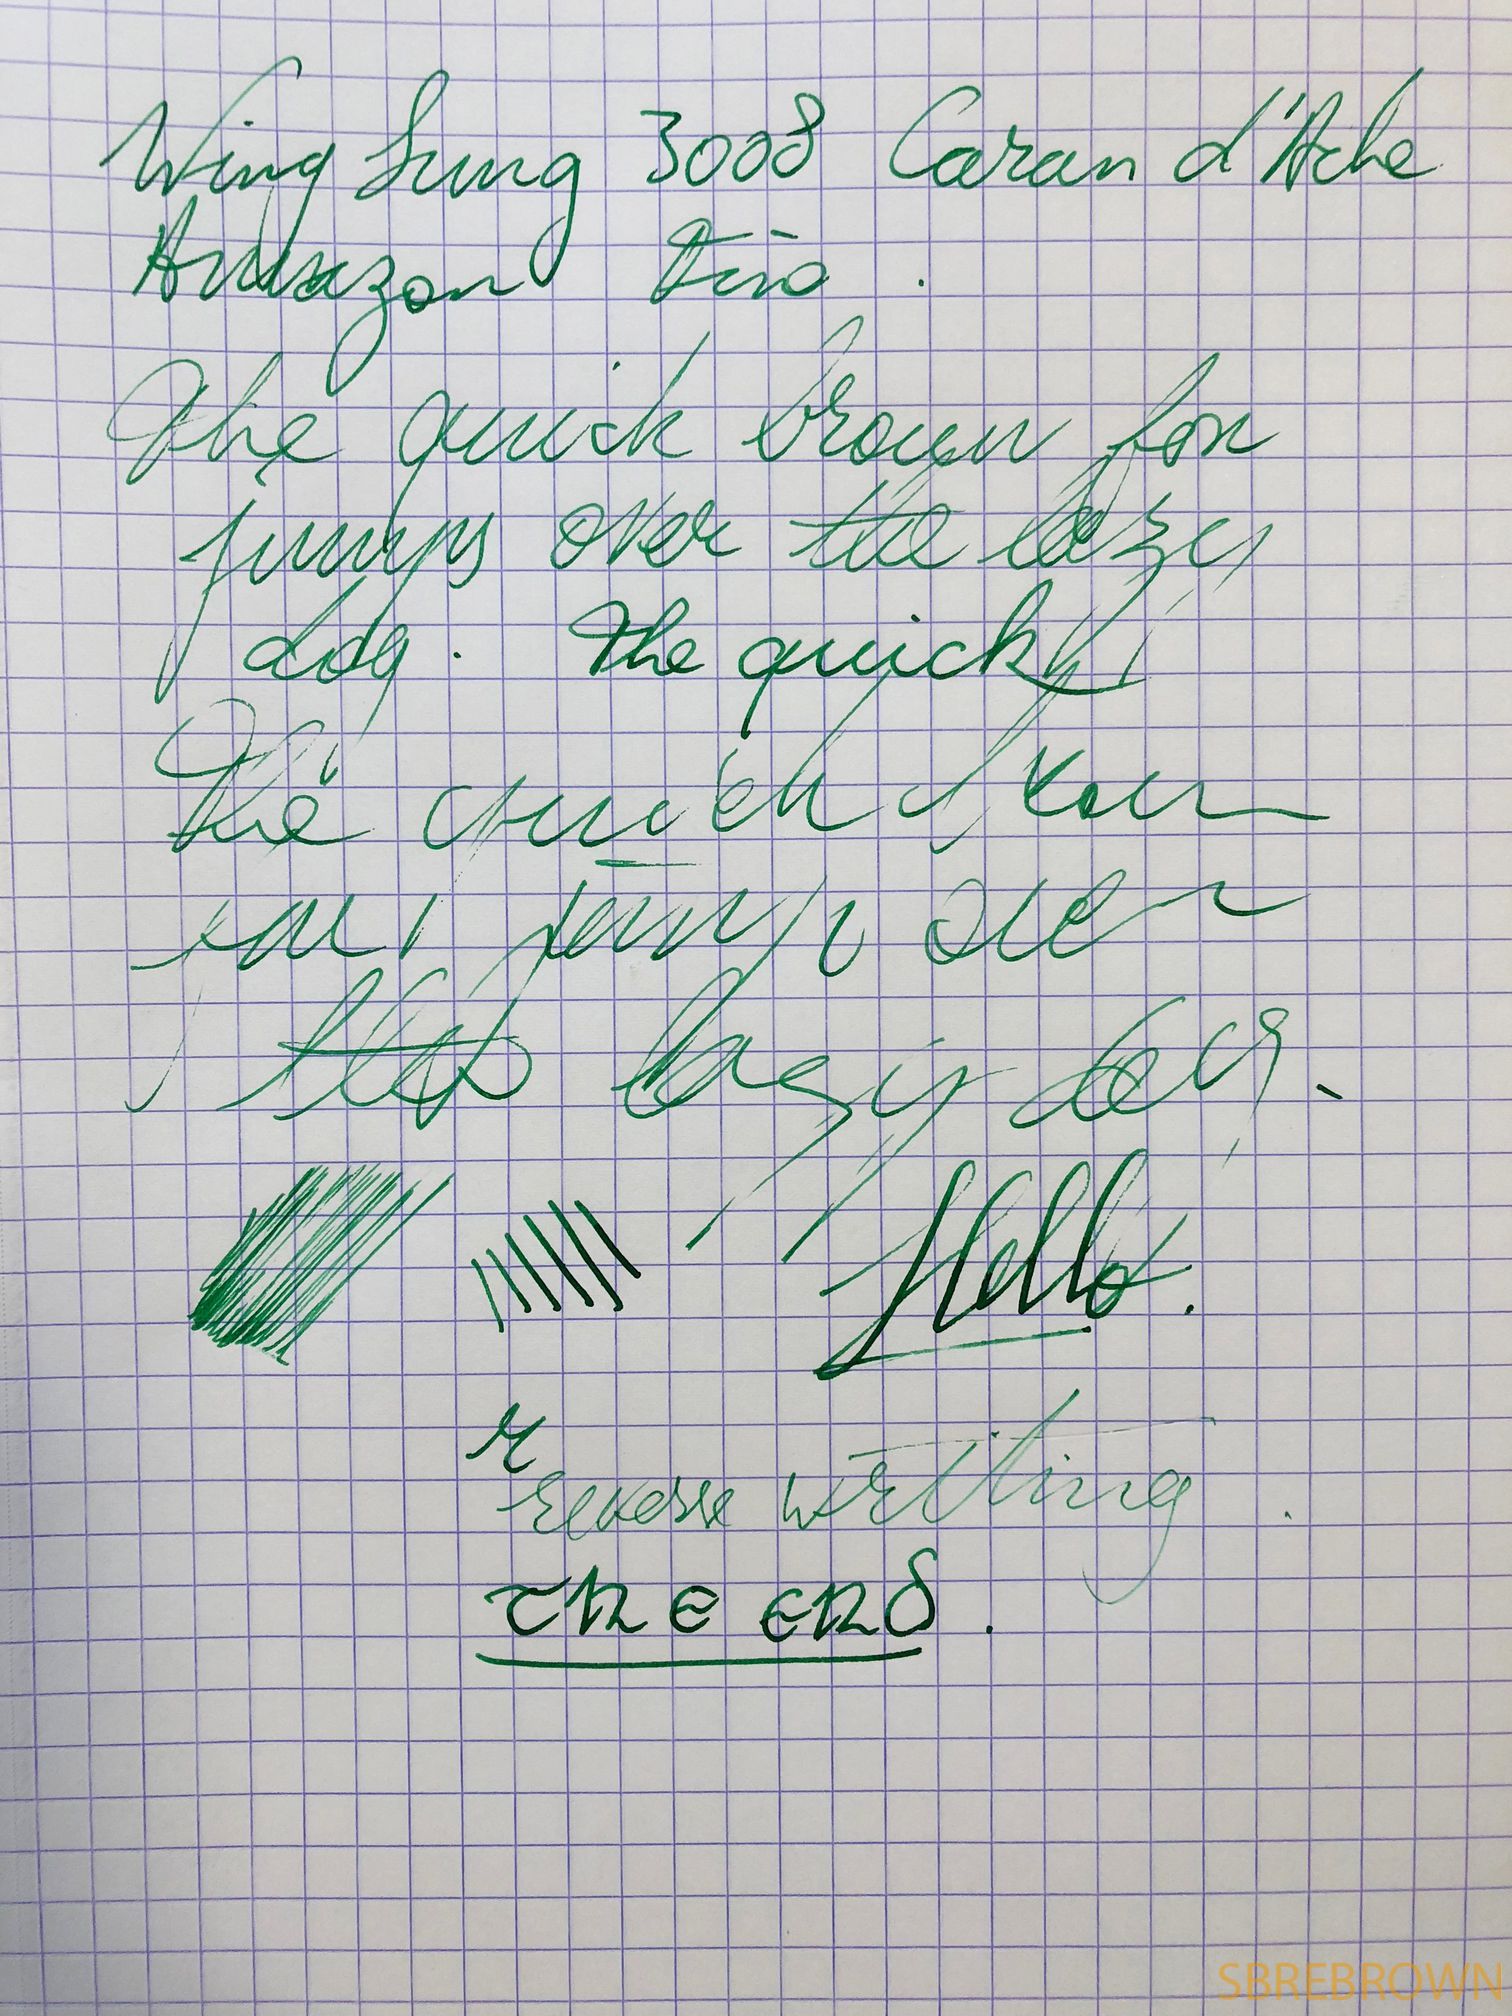 Wing Sung 3008 Caran d'Ache
Amazon
The quick brown fox
jumps over the lazy
dog. The quick
The quick brown
fox jumps over
the lazy dog.
Hello.
r
reverse writing.
the end.
SBREBROWN